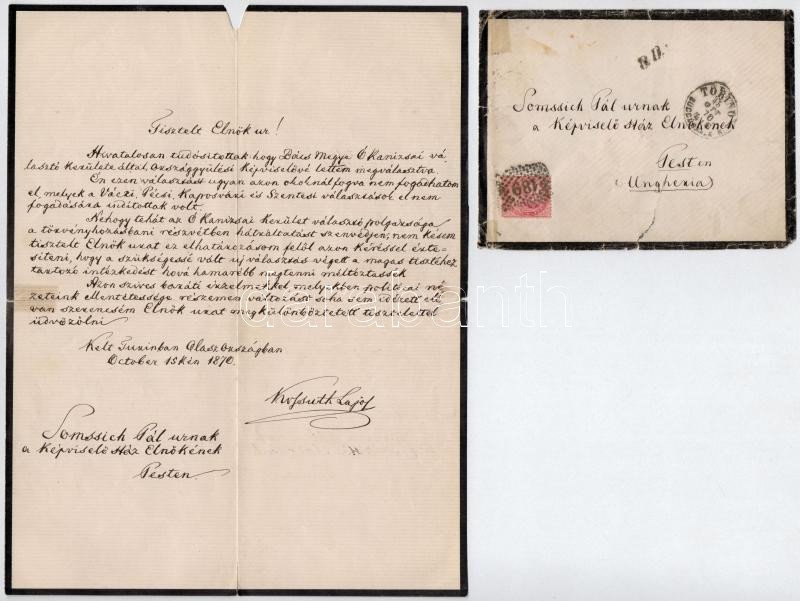 Tisztelt Elnök ur!
Hivatalosan tudósitottak hogy Bács Megye Ó Kanizsai vá-
lasztó kerülete által országgyülési Képviselővé lettem megválasztva.
Én ezen választást ugyan azon okoknál fogva nem fogadhatom
el, melyek a Váczi, Pécsi, Kaposvári és Szentesi választások el nem
fogadására inditottak volt.
Nehogy tehát az Ó Kanizsai Kerület választó polgársága
a törvényhozásbani részvétben hátráltatást szenvedjen; nem késem
tisztelt Elnök urat ez elhatározásom felől azon kéréssel érte-
siteni, hogy a szükségessé vált új választás végett a magas tisztéhez
tartozó intézkedést hová hamarébb megtenni méltóztassék
Azon szives baráti érzelmekkel, melyekben politicai né-
zeteink részemen változást soha sem idézett elő
van szerencsém Elnök urat megkülönböztetett tisztelettel
üdvözölni
Kelt Turinban Olaszországban
October 15kén 1870.
Kossuth Lajos
Somssich Pál urnak
a Képviselő Ház Elnökének
Pesten
P.D.
TORINO
Somssich Pál urnak
a Képviselő Ház Elnökének
Pesten
(Ungheria)
189
darabanth